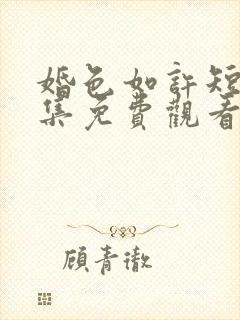 婚色如許短
集免費觀看
顧青澈